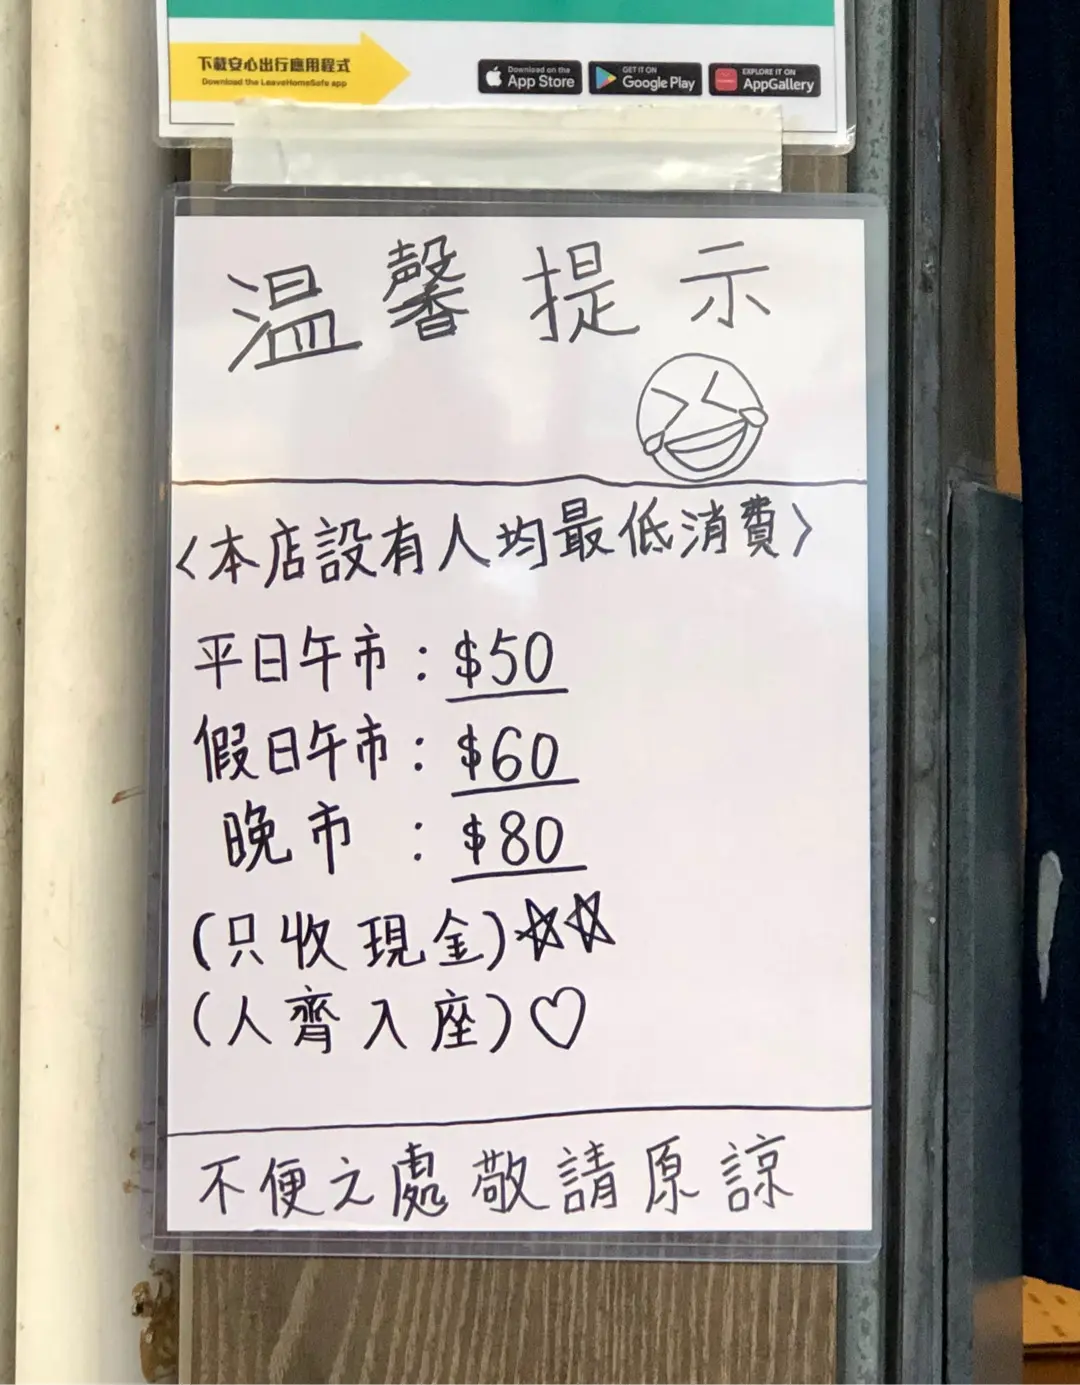 下載安心出行應用程式
Download the LeaveHomeSafe app
Download on the
App Store
GET IT ON
Google Play
EXPLORE IT ON
AppGallery
溫馨提示
〈本店設有人均最低消費〉
平日午市：$50
假日午市：$60
晚市：$80
(只收現金)☆☆
(人齊入座)♡
不便之處敬請原諒